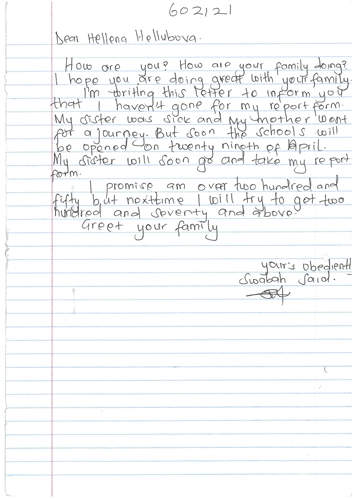 602121
Dear Hellena Hellubova.
How are you? How are your family doing?
I hope you are doing great with your family.
I'm writing this letter to inform you
that I haven't gone for my report form.
My sister was sick and my mother went
for a journey. But soon the schools will
be opened on twenty nineth of April.
My sister will soon go and take my report
form.
I promise am over two hundred and
fifty but nexttime I will try to get two
hundred and seventy and above.
Greet your family
your's obedient
Swabah Said.